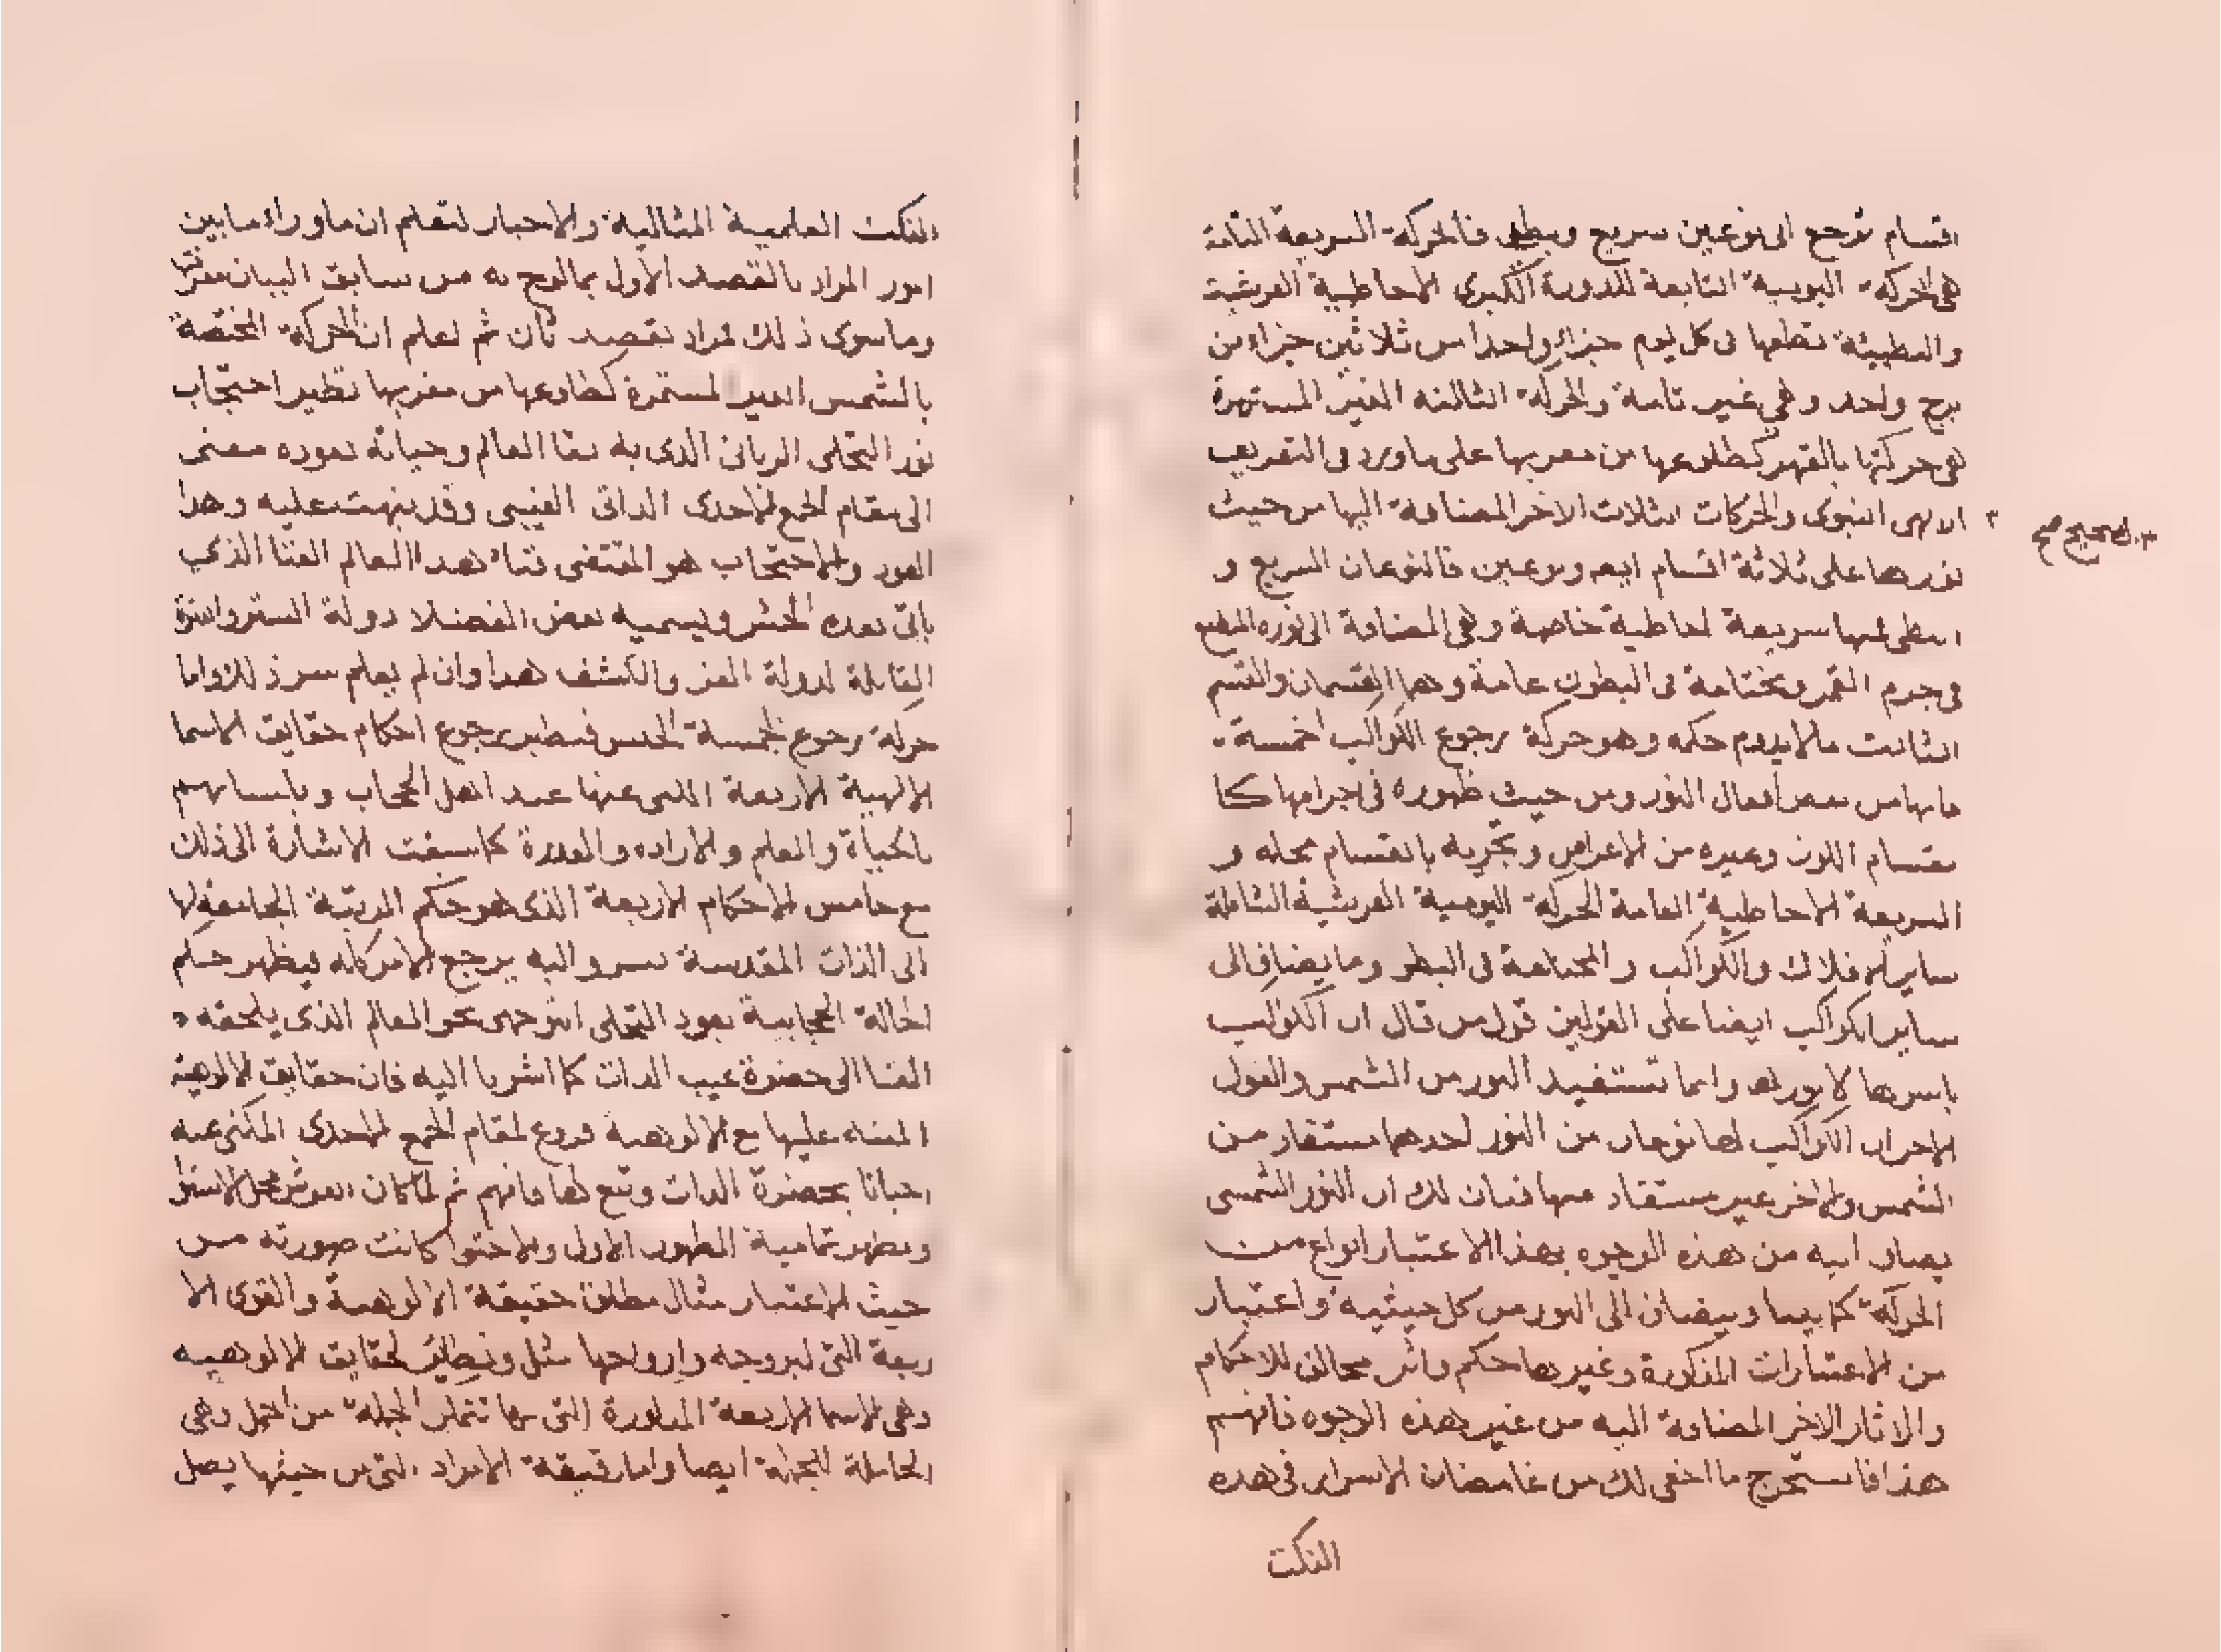 اقسام ترجع الى نوعين سريع وبطى فالحركة السريعة التامة
هى الحركة اليومية التابعة للدورة الكبرى الاحاطية العرشية
والبطيئة تطعها فى كل يوم جزاء واحدا من ثلاثين جزاء من
برج واحد وهى غير تامة والحركة الثالثه الغير المستمرة
هى حركتها بالقهر كطلوعها من مغربها على ما ورد فى التعريف
الالهى النبوى والحركات الثلاث الاخر المضافة اليها من حيث
نورها على ثلاثة اقسام ايضا ونوعين فالنوعان السريع و
البطى فمنها سريعة احاطية خاصة وهى المضافة الى نوره المنطبع
فى جرم القمر ومختامة فى البطون عامة وهما القسمان والقسم
الثالث ما لا يدوم حكمه وهو حركة رجوع الكواكب الخمسة
فانها من بعض افعال النور ومن حيث ظهوره فى اجرامها كا
نقسام اللون وغيره من الاعراض وتجزيه بانقسام محله و
السريعة الاحاطية العامة الحركة اليومية العرشية الشاملة
ساير الافلاك والكواكب والمختامة فى البطو وما يضاف الى
ساير الكواكب ايضا على القولين قول من قال ان الكواكب
باسرها لا نور لها وانما تستفيد النور من الشمس والقول
الاخر ان الكواكب لها نوعان من النور احدهما مستفاد من
الشمس والاخر غير مستفاد منها فبان لك ان النور الشمسى
يضاف اليه من هذه الوجوه بهذا الاعتبار انواع من
الحركة كما بينا ويضاف الى النور من كل حيثيه واعتبار
من الاعتبارات المذكورة وغيرها حكم واثر مخالف للاحكام
والاثار الاخر المضافة اليه من غير هذه الوجوه فافهم
هذا فاستخرج ما اخفى لك من غامضات الاسرار فى هذه
النكت
النكت العلمية المثالية والاخبار لتعلم ان ما وراء ما بين
امور المراد بالقصد الاول بما لوح به من سابق البيان
وما سوى ذلك فمراد بقصد ثان ثم لتعلم ان الحركة المختصة
بالشمس الغير المستمرة كطلوعها من مغربها نظير احتجاب
نور التجلى الربانى الذى به بقا العالم وحياته بعوده معنى
الى مقام الجمع الاحدى الذاتى الغيبى وقد نبهت عليه وهذا
العود والاحتجاب هو المقتضى فناء هذا العالم الفنا الذي
ياتى بعده الحشر ويسميه بعض الفضلا دولة الستر
القابلة لدولة العز والكشف هذا وان لم يعلم سر ذلك واما
حركة رجوع الخمسة الخنس فنظير رجوع احكام حقايق الاسما
الالهية الاربعة المكنى عنها عند اهل الحجاب وبلسانهم
بالحياة والعلم والاراده والقدرة كما سبقت الاشارة الى ذلك
مع خامس الاحكام الاربعة الذى هو حكم المرتبة الجامعة لها
الى الذات المقدسة بسر واليه يرجع الامر كله فيظهر حكم
الحالة الحجابية بعود التجلى التوجهى نحو العالم الذى يلحقه
الفنا الى حضرة غيب الذات كما اشرنا اليه فان حقايق الالوهية
المنبه عليها مع الالوهية فروع لمقام الجمع الاحدى المكنى عنه
احيانا بحضرة الذات وتبع لها فافهم ثم لما كان العرش محل الاستوا
ومظهر تمامية الظهور الاول والاحتوا كانت صورته من
حيث الاعتبار مثال مطلق حقيقة الالوهية والقوى الا
ربعة التى لبروجه وارواحها مثل ونظاير لحقايق الالوهيه
وهى الاسما الاربعة المذكورة التى بها تتحلى الجملة من اجمل وهى
الحاملة للجملة ايضا واما رقيقة الامداد التى من حيثها يصل